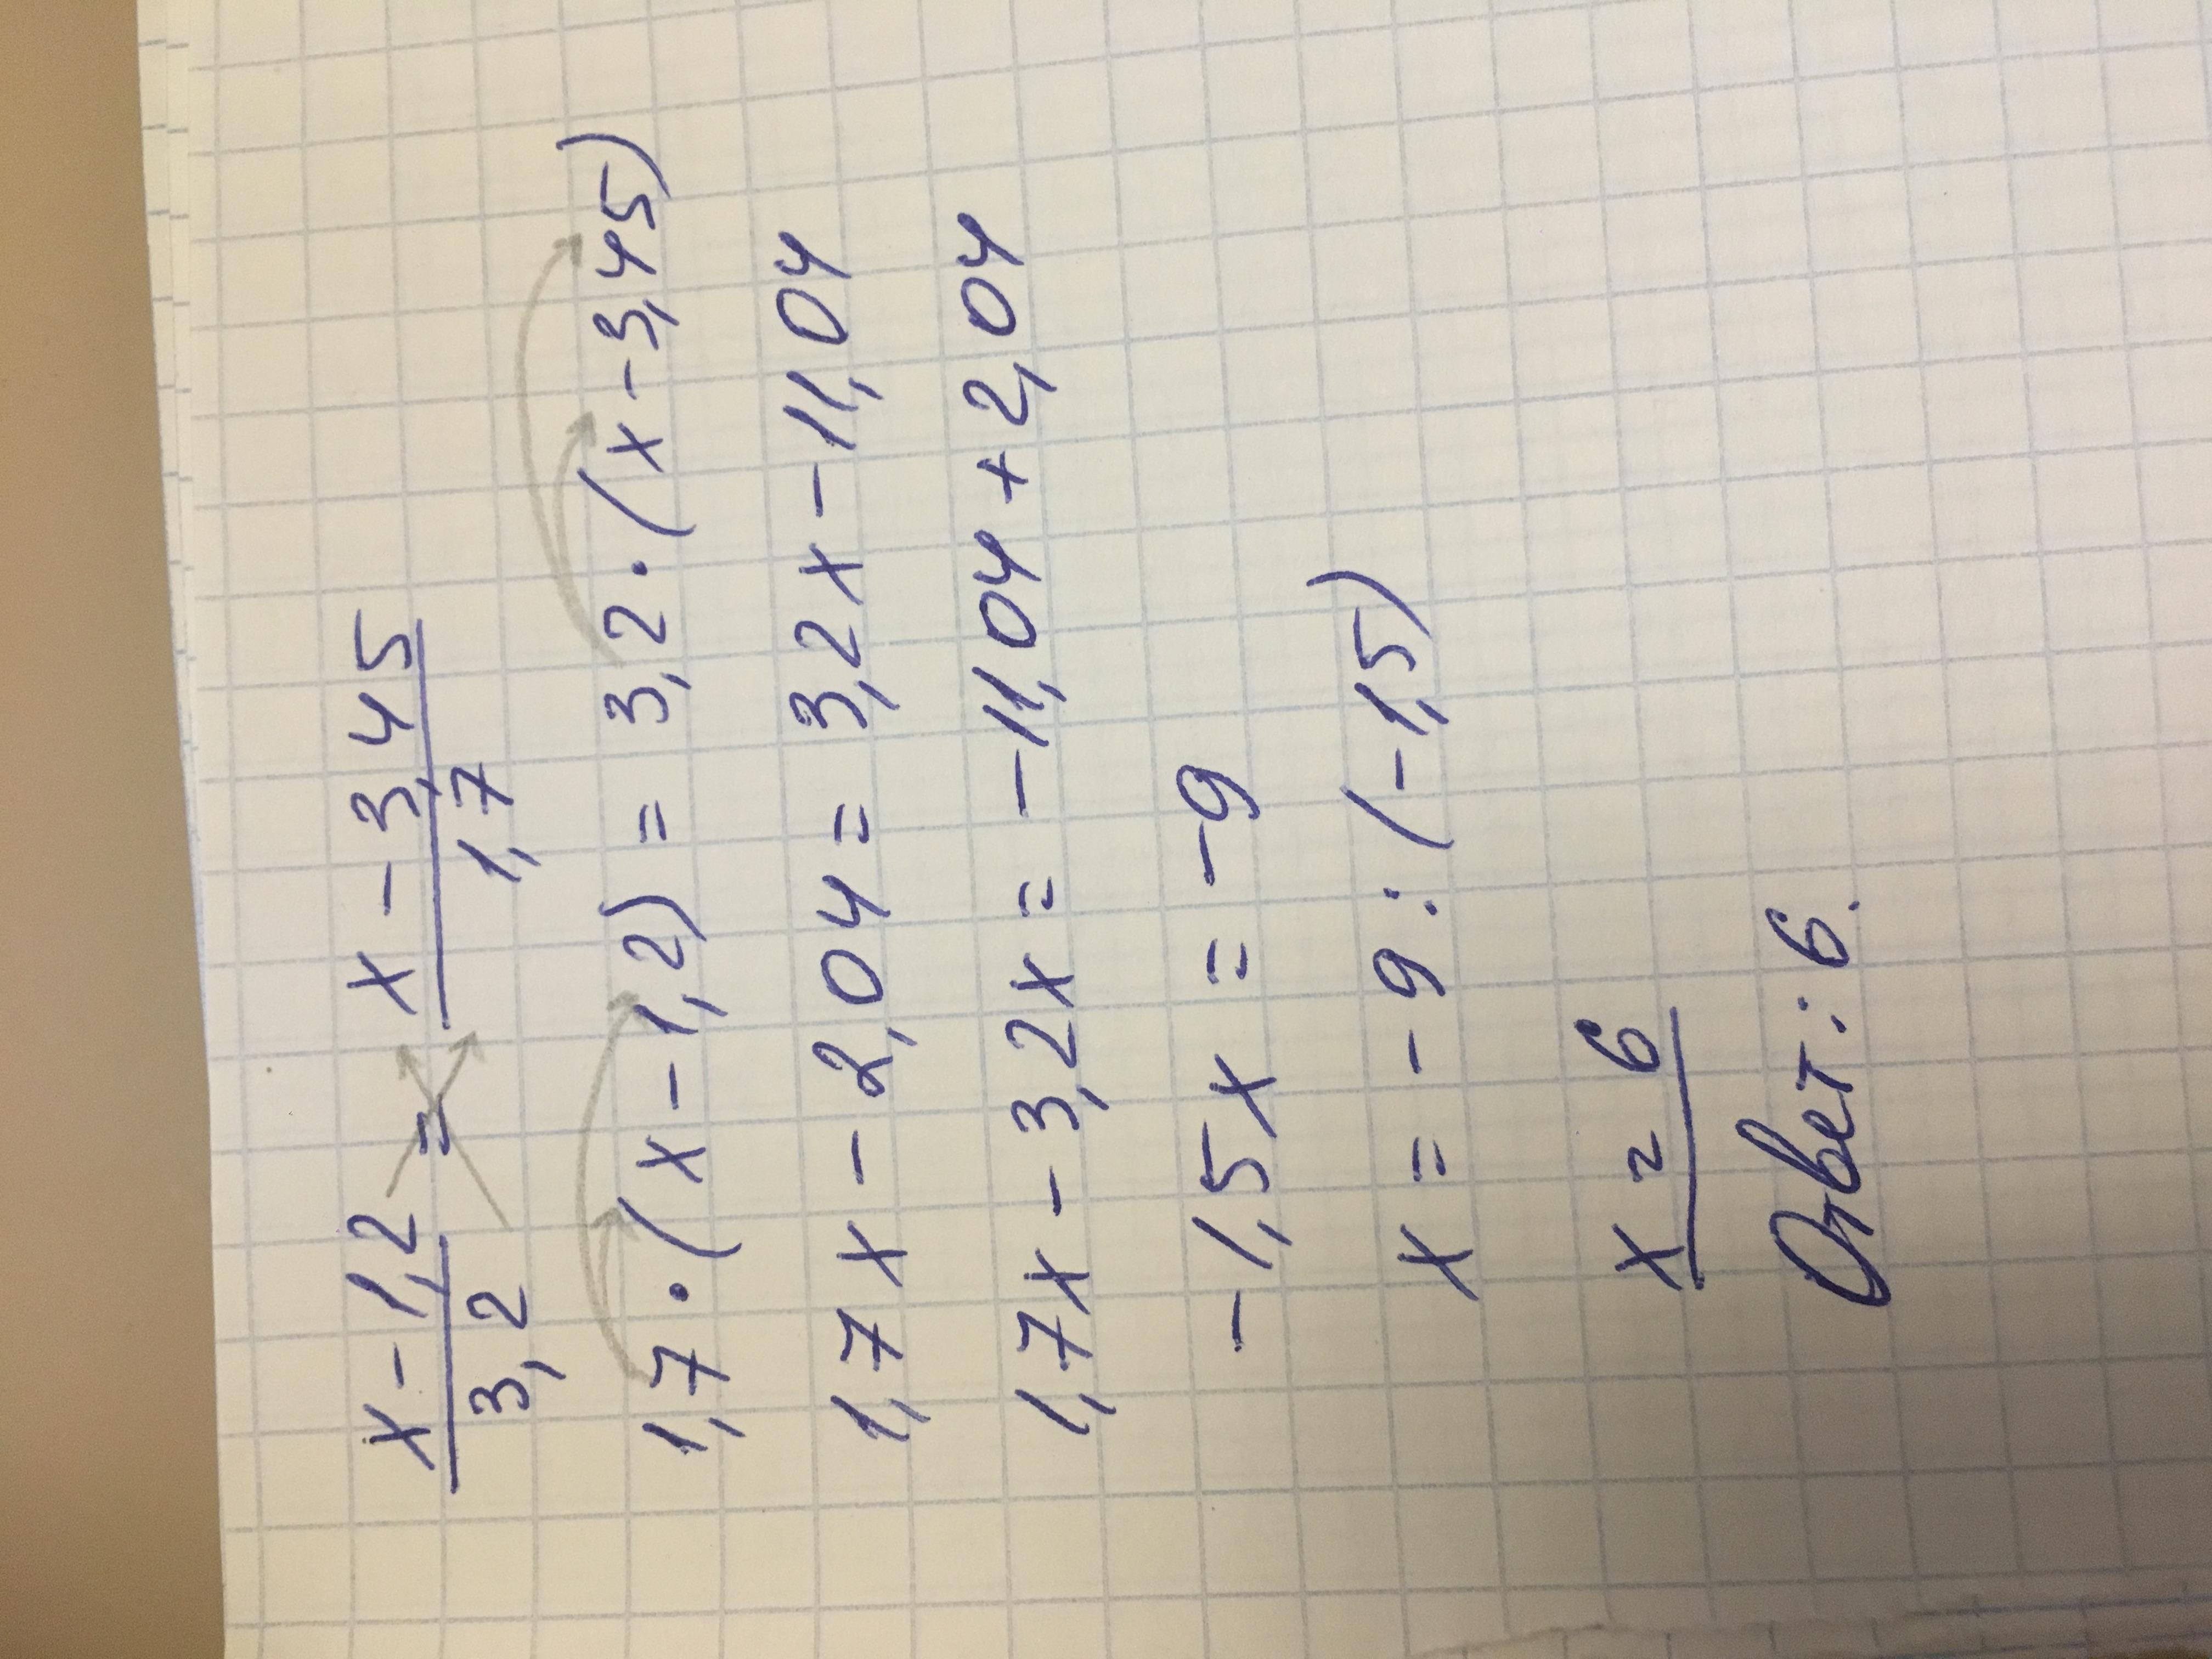 x - 1,2 / 3,2 = x - 3,45 / 1,7
1,7 · (x - 1,2) = 3,2 · (x - 3,45)
1,7x - 2,04 = 3,2x - 11,04
1,7x - 3,2x = -11,04 + 2,04
-1,5x = -9
x = -9 : (-1,5)
x = 6
Ответ: 6.